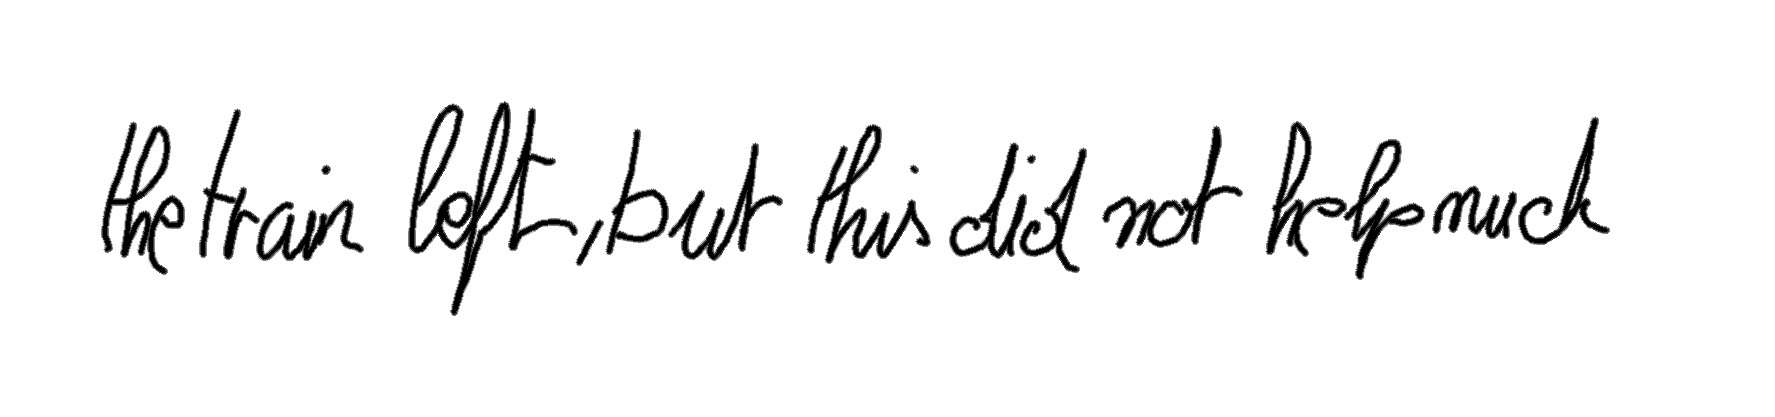 the train left, but this did not help much